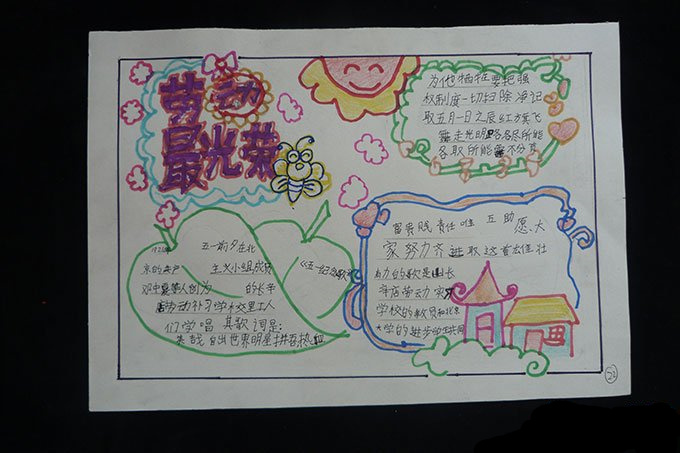 劳动
最光荣
为他牺牲要把强
权制度一切扫除净记
取五月一日之辰红旗飞
走光明路各尽所能
各取所能不分
五一前夕在北
《五一纪念歌》
京的共产 主义小组成员
邓中夏等人创为 的长辛
店劳动补习学校里工人
们学唱 其歌词是:
美哉自由世界明星拼吾热血
富贵贱责任唯互助愿大
家努力齐进取这首宏伟壮
力的歌是由长
辛店劳动
学校的教员和北京
大学的进步学生共同
22